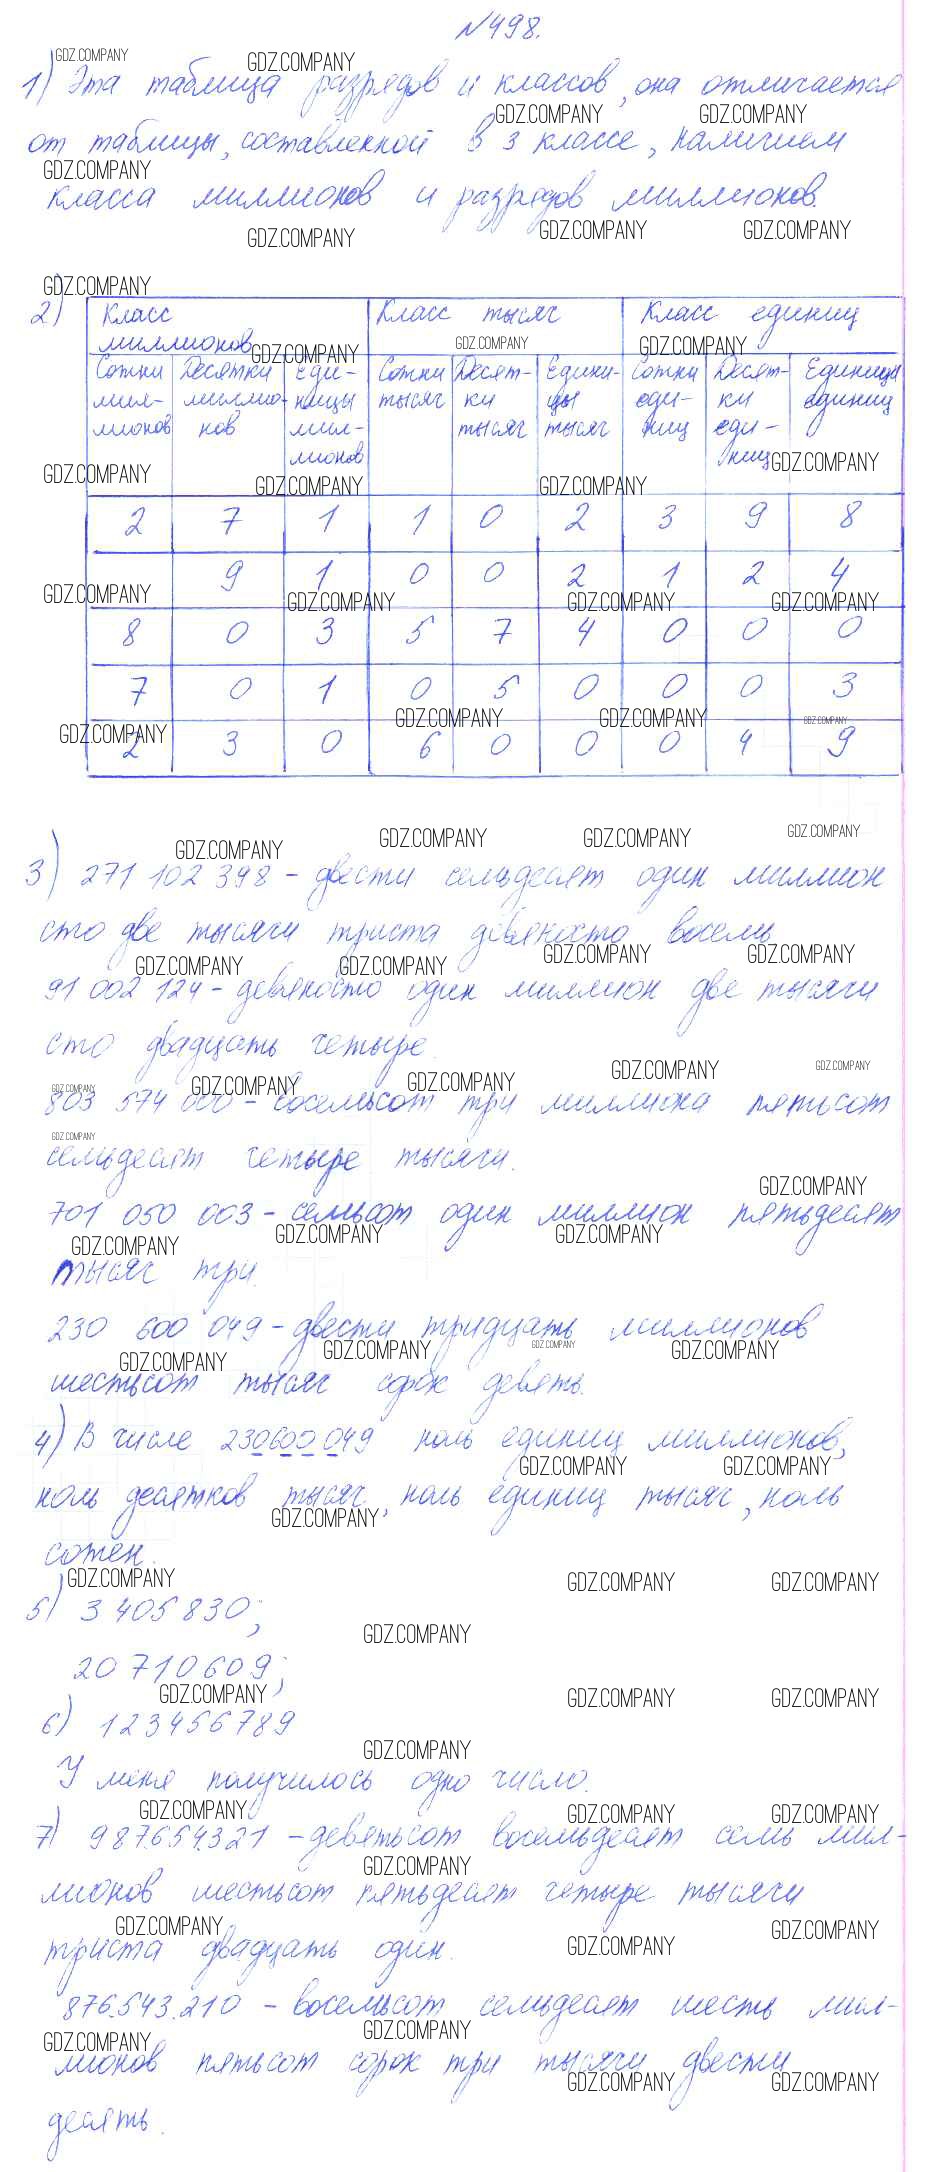 №498.
1) Эта таблица разрядов и классов, она отличается
от таблицы, составленной в 3 классе, наличием
класса миллионов и разрядов миллионов.
2)
Класс миллионов Класс тысяч Класс единиц
Сотни миллионов Десятки миллионов Единицы миллионов Сотни тысяч Десятки тысяч Единицы тысяч Сотни единиц Десятки единиц Единицы единиц
2 7 1 1 0 2 3 9 8
9 1 0 0 2 1 2 4
8 0 3 5 7 4 0 0 0
7 0 1 0 5 0 0 0 3
2 3 0 6 0 0 0 4 9
3) 271 102 398 – двести семьдесят один миллион
сто две тысячи триста девяносто восемь
91 002 124 – девяносто один миллион две тысячи
сто двадцать четыре.
803 574 000 – восемьсот три миллиона пятьсот
семьдесят четыре тысячи.
701 050 003 – семьсот один миллион пятьдесят
тысяч три.
230 600 049 – двести тридцать миллионов
шестьсот тысяч сорок девять.
4) В числе 230600049 ноль единиц миллионов,
ноль десятков тысяч, ноль единиц тысяч, ноль
сотен.
5) 3 405 830;
20 710 609;
6) 123456789
У меня получилось одно число.
7) 987.654.321 – девятьсот восемьдесят семь мил-
лионов шестьсот пятьдесят четыре тысячи
триста двадцать один.
876.543.210 – восемьсот семьдесят шесть мил-
лионов пятьсот сорок три тысячи двести
десять.
GDZ.COMPANY